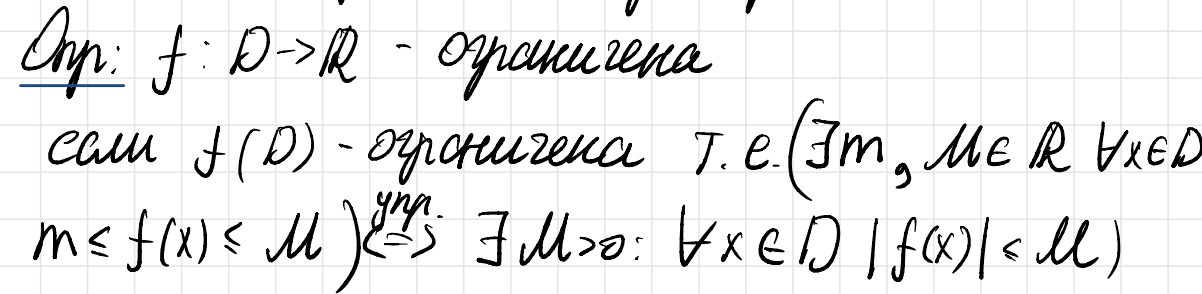 Опр: f : D → ℝ - ограничена
если f(D) - ограничена т.е. (∃m, M ∈ ℝ ∀x∈D
m ≤ f(x) ≤ M) упр. <=> ∃ M>0: ∀x ∈ D |f(x)| ≤ M)